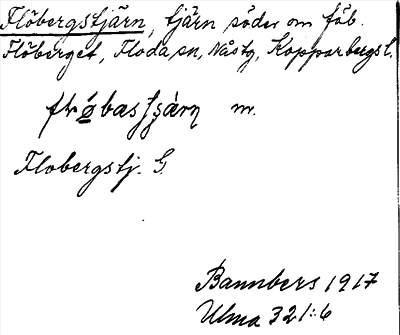 Flöbergstjärn, tjärn söder om fäb.
Flöberget, Floda sn, Nåstg, Kopparbergs l.
m.
Flobergstj. G.
Bannbers 1917
Ulma 321:6